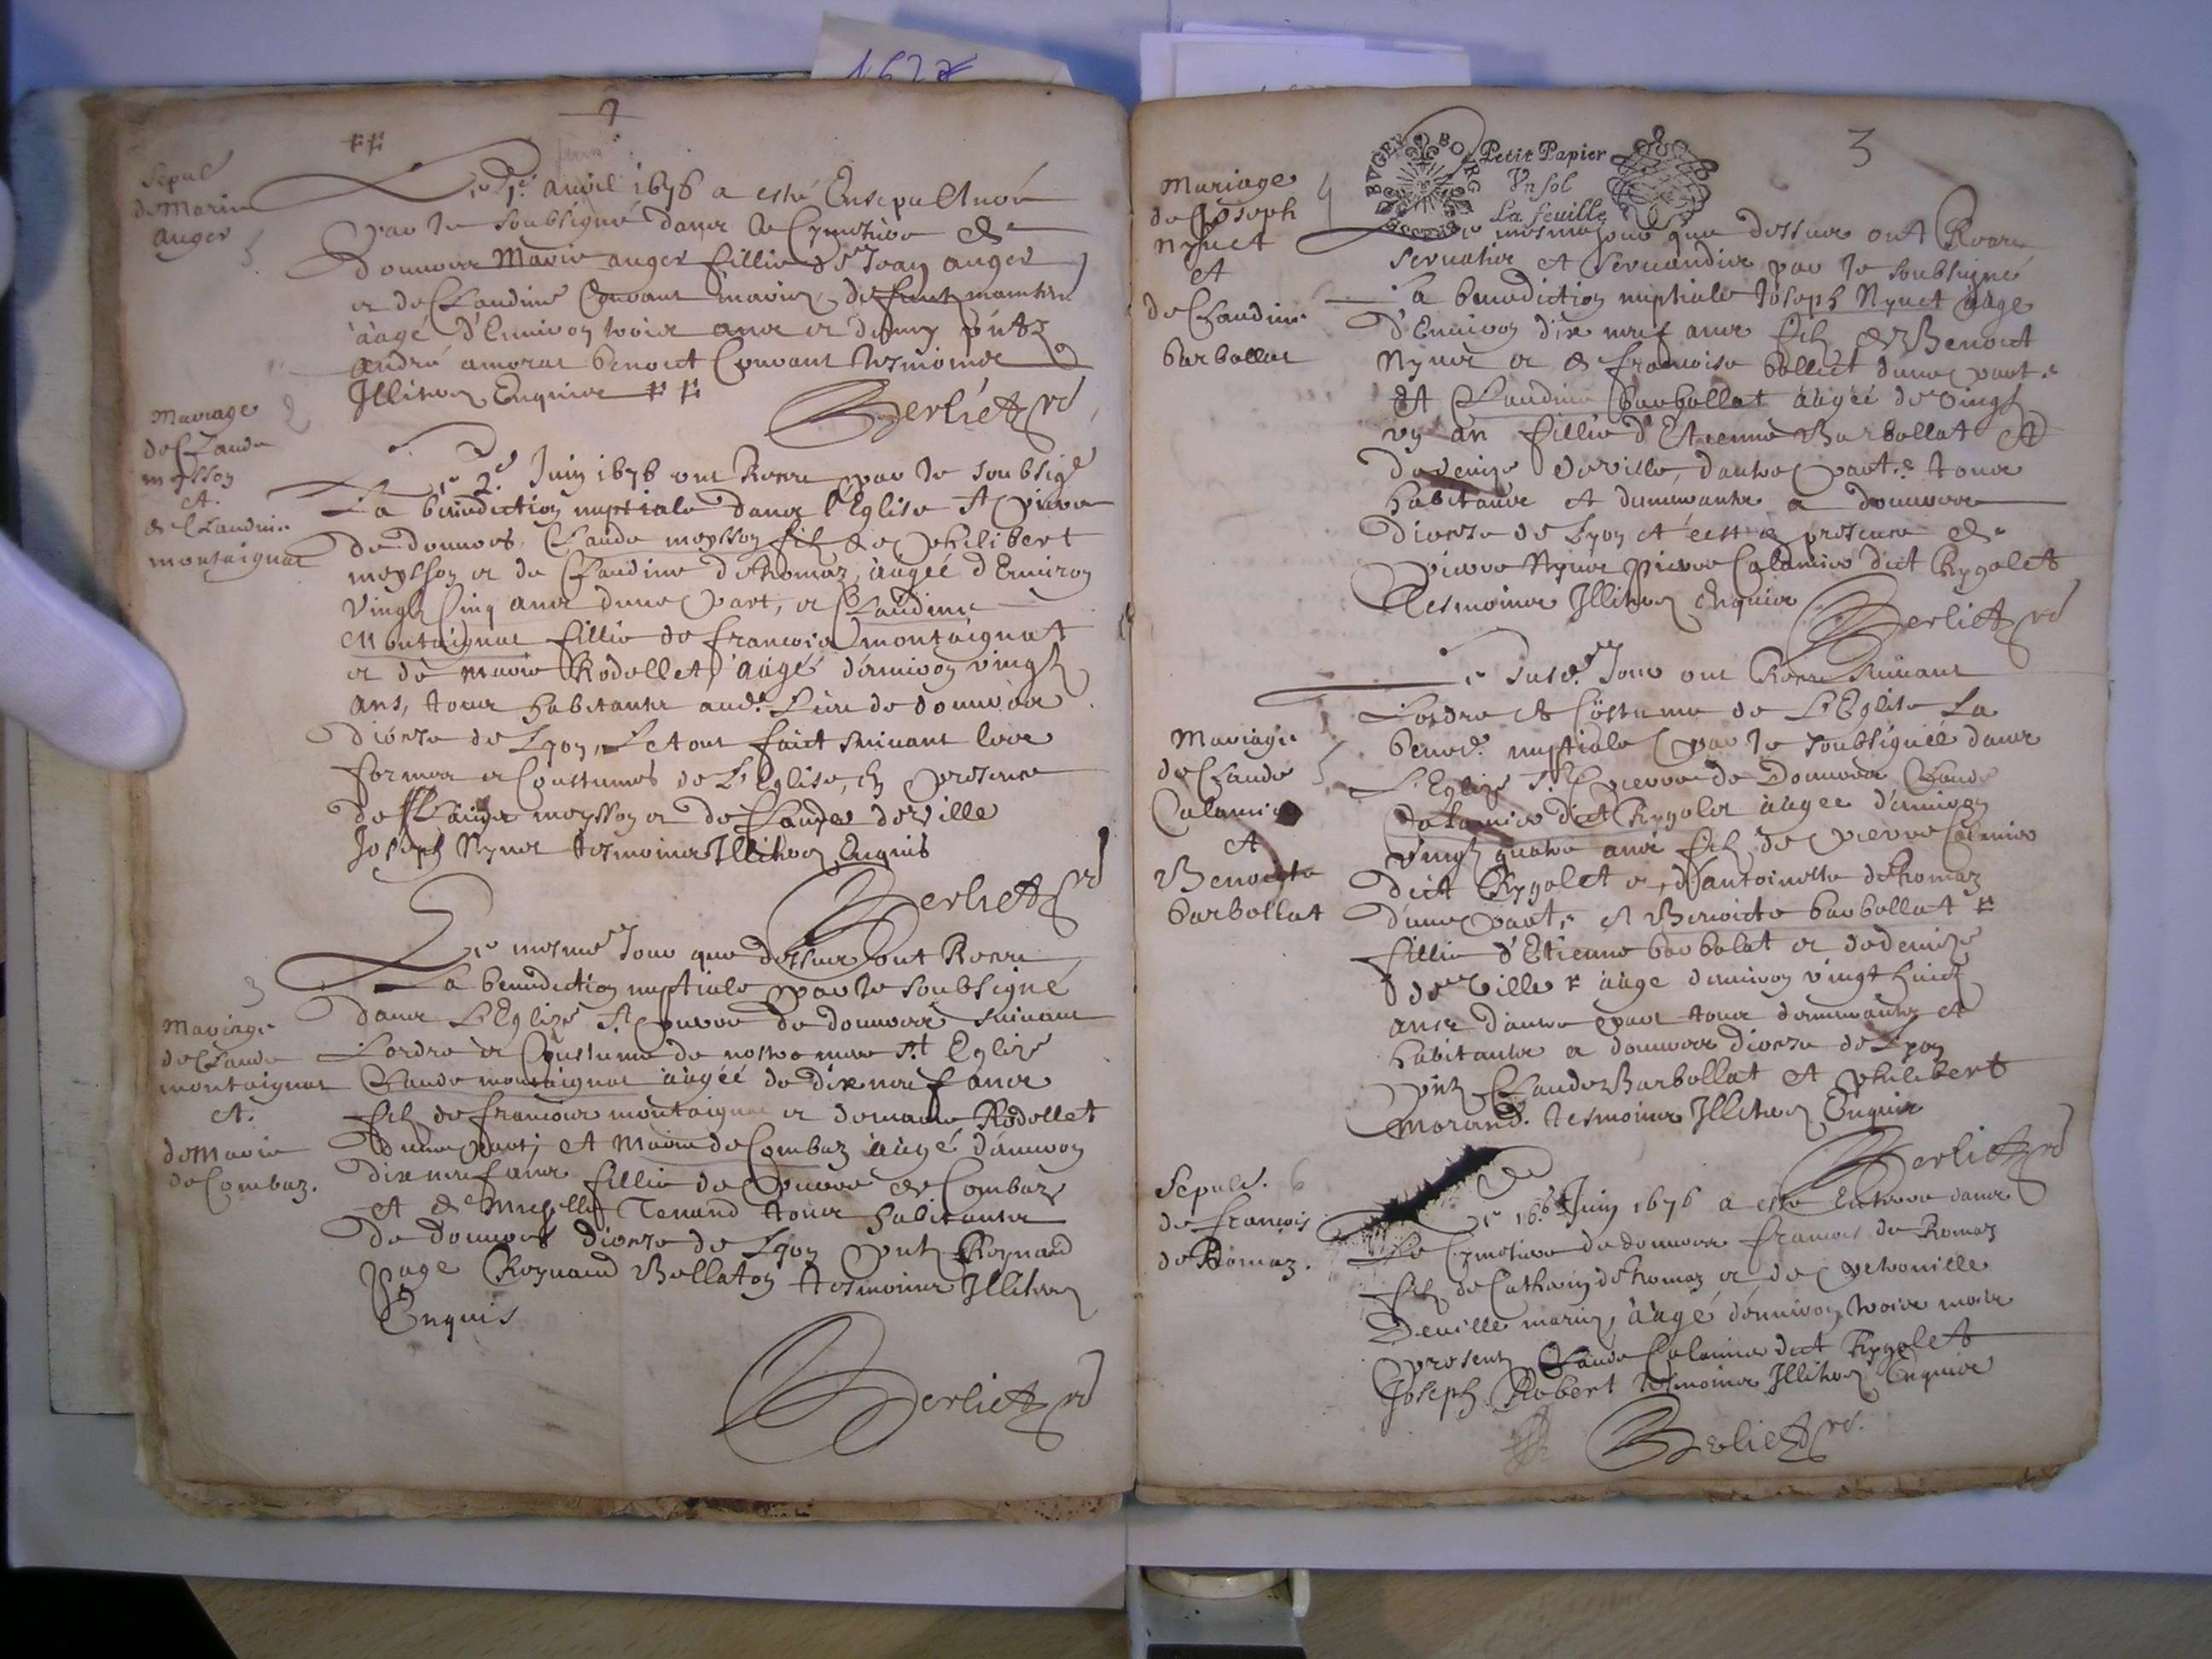 Sepul
de Marie
auger
Le 1e auril 1676 a esté Ensepulturé
par le soubsigné dans le Cymetiere de
douures Marie auger fillie de Jean auger
et de Claudine Conuant mariez
aagé d'Enuiron trois ans et demy pntz
André amorat benoict Conuant tesmoins
Illiterez Enquis
Berliet
Mariage
de Claude
meysson
et
de Claudine
montaignat
Le 2e Juin 1676 ont Receu par le soubsigé
La benediction nuptiale dans l'Eglise St pierre
de douures, Claude meysson filz de philibert
meysson et de Claudine dethomaz, aagée d'Enuiron
Vingt Cinq ans dune part, et Claudine
Montaignat fillie de francois montaignat
et de marie Rodollet, aagé d'enuiron vingt
ans, tous habitants aud. Lieu de douures
diocese de Lyon, Le tout faict suiuant les
formes et Coustumes de L'Eglise, En presence
de Claude meysson et de Claude deville
Joseph Nynet tesmoins Illiterez Enquis
Berliet
3
Mariage
de Claude
montaignat
et.
de Marie
de Combaz.
Le mesme Jour que dessus ont Receu
La benediction nuptiale par le soubsigné
dans L'Eglize St pierre de douures suiuant
L'ordre et Coustume de nostre mere St Eglize
Claude montaignat aagéé de dix neuf ans
filz de francois montaignat et de marie Rodollet
dune part, et Marie de Combaz aagé d'enuiron
dix neuf ans fillie de pierre de Combaz
et de Tenand tous habitants
de douures diocese de Lyon pntz Reynaud
page Reynaud Bollaton tesmoins Illiterez
Enquis
Berliet
3
BVGEY BOVRG
Petit Papier
Vn sol
La feuille
Mariage
de Joseph
Nynet
et
de Claudine
barbollat
4
Le mesme jour que dessus ont Receu
seruatis et seruandis par le soubsigné
La benediction nuptiale Joseph Nynet aage
d'Enuiron dix neuf ans filz de Benoict
Nynet et de francoise bollict dune part.
Et Claudine barbollat aagéé de vingt
vn an fillie d'Estienne Barbollat et
de denize deville, dautre part. tous
habitants et demeurants a douures
diocese de Lyon et c'est en presence de
pierre Nynet pierre Calamier dict Rygolet
tesmoins Illiterez Enquis
Berliet
Mariage
de Claude
Calamier
et
Benoicte
barbollat
5
Le susd. Jour ont Receu suiuant
L'ordre et Coustume de L'Eglise La
bened. nuptiale par le soubsignéé dans
L'Eglize St pierre de Douures Claude
Calamier dict Rygolet aagee d'enuiron
vingt quatre ans filz de pierre Calamier
dict Rygolet et d'antoinette dethomaz
d'une part. et Benoicte barbollat
fillie d'Etienne barbolat et de denize
de Ville aage d'enuiron vingt huict
ans d'autre part tous demeurants et
habitants a douures diocese de Lyon
pntz Claude Barbollat et philibert
morand. tesmoins Illiterez Enquis
Berliet
Sepult. 6
de francois
de Romaz.
Le 16e Juin 1676 a esté Enterre dans
Le Cymetiere de douures francois de Romaz
filz de Catherin dethomaz et de petronille
Deuille mariez, aagé d'enuiron trois mois
presentz Claude Calamier dict Rygolet
Joseph Robert tesmoins Illiterez Enquis
Berliet